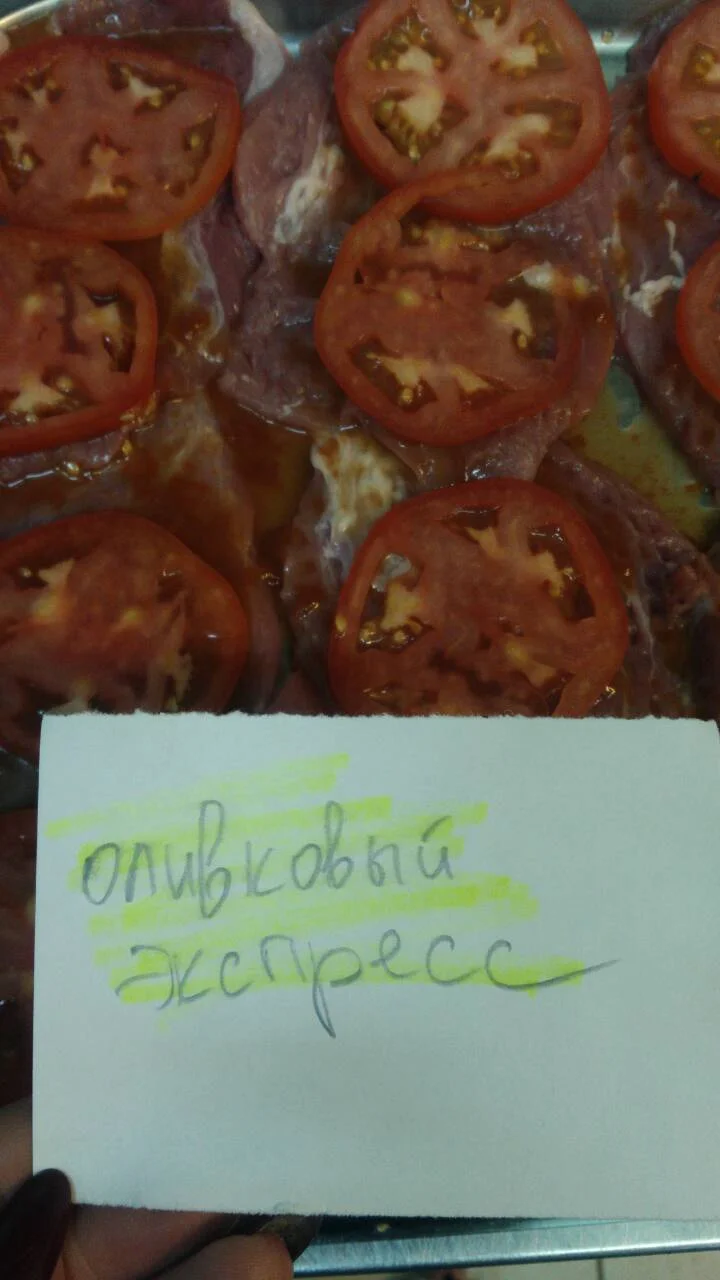 оливковый
экспресс